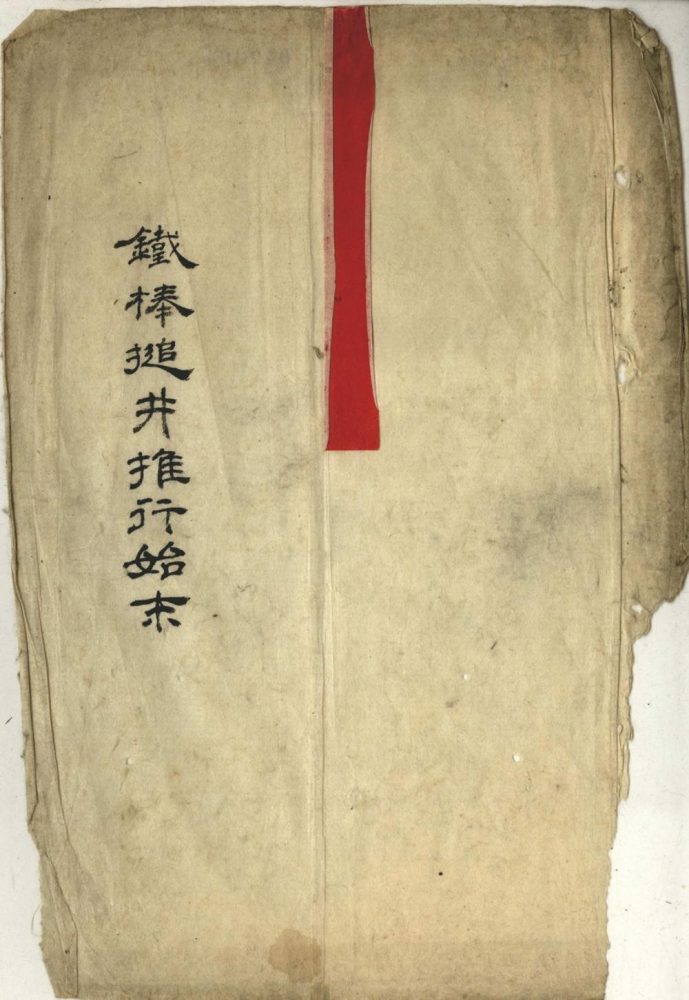 鐵棒搥井推行始末